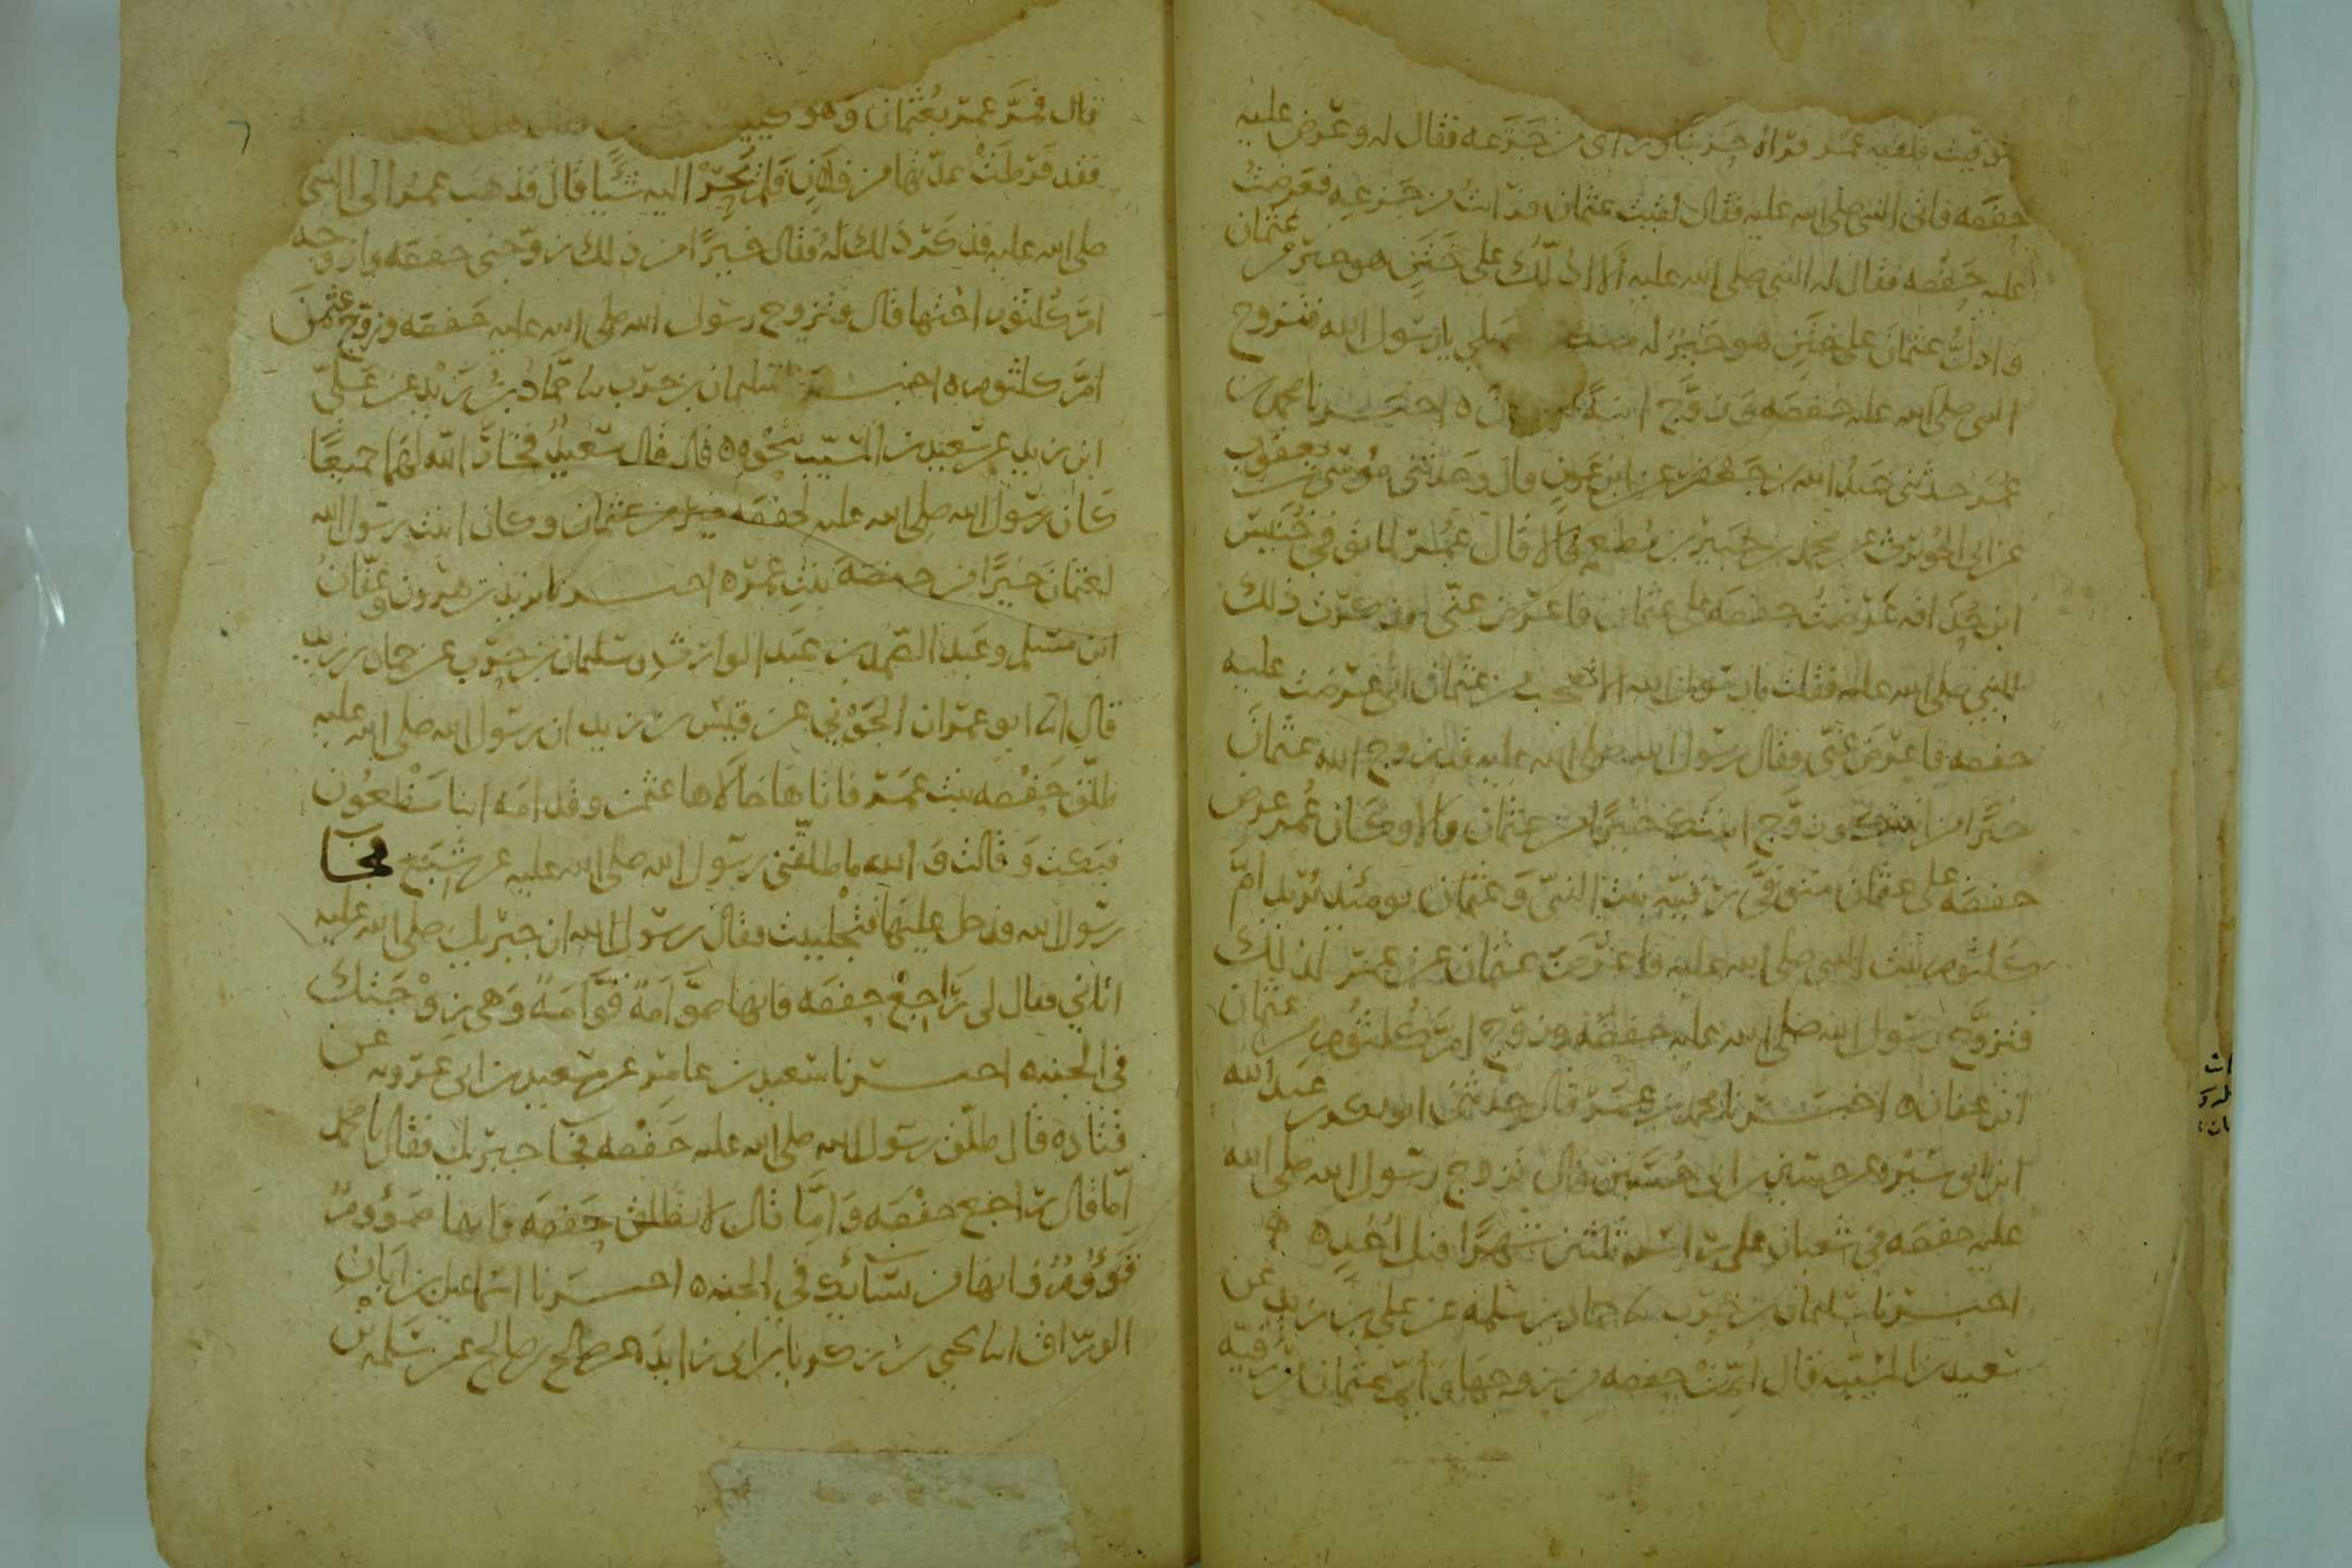 توفيت فلقيه عمر فراه حزينا وراى من جزعه فقال له وعرض عليه
حفصه فاتى النبى صلى الله عليه فقال لقيت عثمان فرايت من جزعه فعرضت
عليه حفصه فقال له النبى صلى الله عليه الا ادلك على ختن هو خير من عثمان
وادل عثمان على ختن هو خير له منك بلى يا رسول الله فتزوج
النبى صلى الله عليه حفصه وزوج ابنته اخبرنا محمد بن
عمر حدثنى عبد الله بن جعفر عن ابن عون قال وحدثنى موسى بن يعقوب
عن ابى الحويرث عن محمد بن جبير بن مطعم قالا قال عمر لما توفى خنيس
ابن حذافه عرضت حفصه على عثمان فاعرض عنى فذكرت ذلك
للنبى صلى الله عليه فقلت يا رسول الله الا تعجب من عثمان انى عرضت عليه
حفصه فاعرض عنى فقال رسول الله صلى الله عليه قد زوج الله عثمان
خيرا من ابنتك وزوج ابنتك خيرا من عثمان قالا وكان عمر عرض
حفصه على عثمان متوفى رقيه بنت النبى وعثمان يومئذ يريد ام
كلثوم بنت النبى صلى الله عليه فاعرض عثمان عن عمر لذلك
فتزوج رسول الله صلى الله عليه حفصه وزوج ام كلثوم من عثمان
ابن عفان ٥ اخبرنا محمد بن عمر قال حدثنى ابو بكر بن عبد الله
ابن ابى سبره عن حسين بن ابى حسين قال تزوج رسول الله صلى الله
عليه حفصه فى شعبان على راس ثلثين شهرا قبل احد ٥
اخبرنا سليمان بن حرب حماد بن سلمه عن على بن زيد عن
سعيد بن المسيب قال ايمت حفصه من زوجها وايم عثمان من رقيه
قال فمر عمر بعثمان وهو كئيب
فقد فرطت عدتها من فلان فلم يحر اليه شيئا قال فذهب عمر الى النبى
صلى الله عليه فذكر ذلك له فقال خيرا من ذلك زوجنى حفصه وازوجه
ام كلثوم اختها قال فتزوج رسول الله صلى الله عليه حفصه وزوج عثمن
ام كلثوم ٥ اخبرنا سليمان بن حرب حماد بن زيد عن على
ابن زيد عن سعيد بن المسيب بنحوه ٥ قال قال سعيد فخار الله لهما جميعا
كان رسول الله صلى الله عليه لحفصه خيرا من عثمان وكان ابنت رسول الله
لعثمان خيرا من حفصه بنت عمر ٥ اخبرنا يزيد بن هرون وعفان
ابن مسلم وعبد الصمد بن عبد الوارث وسليمان بن حرب عن حماد بن سلمه
قال ابو عمران الجونى عن قيس بن زيد ان رسول الله صلى الله عليه
طلق حفصه بنت عمر فاتاها خالاها عثمن وقدامه ابنا مظعون
فبكت وقالت والله ما طلقنى رسول الله صلى الله عليه عن شبع فجا
رسول الله فدخل عليها فتجلببت فقال رسول الله ان جبريل صلى الله عليه
اتانى فقال لى راجع حفصه فانها صوامة قوامة وهى زوجتك
فى الجنه ٥ اخبرنا سعيد بن عامر عن سعيد بن ابى عروبه عن
قتاده قال طلق رسول الله صلى الله عليه حفصه فجا جبريل فقال يا محمد
اما قال راجع حفصه واما قال لا تطلق حفصه فانها صؤوم
قؤوم وانها من نسائك فى الجنه ٥ اخبرنا اسماعيل بن ابان
الوراق يحيى بن زكريا بن ابى زايده عن صالح بن صالح عن سلمه بن